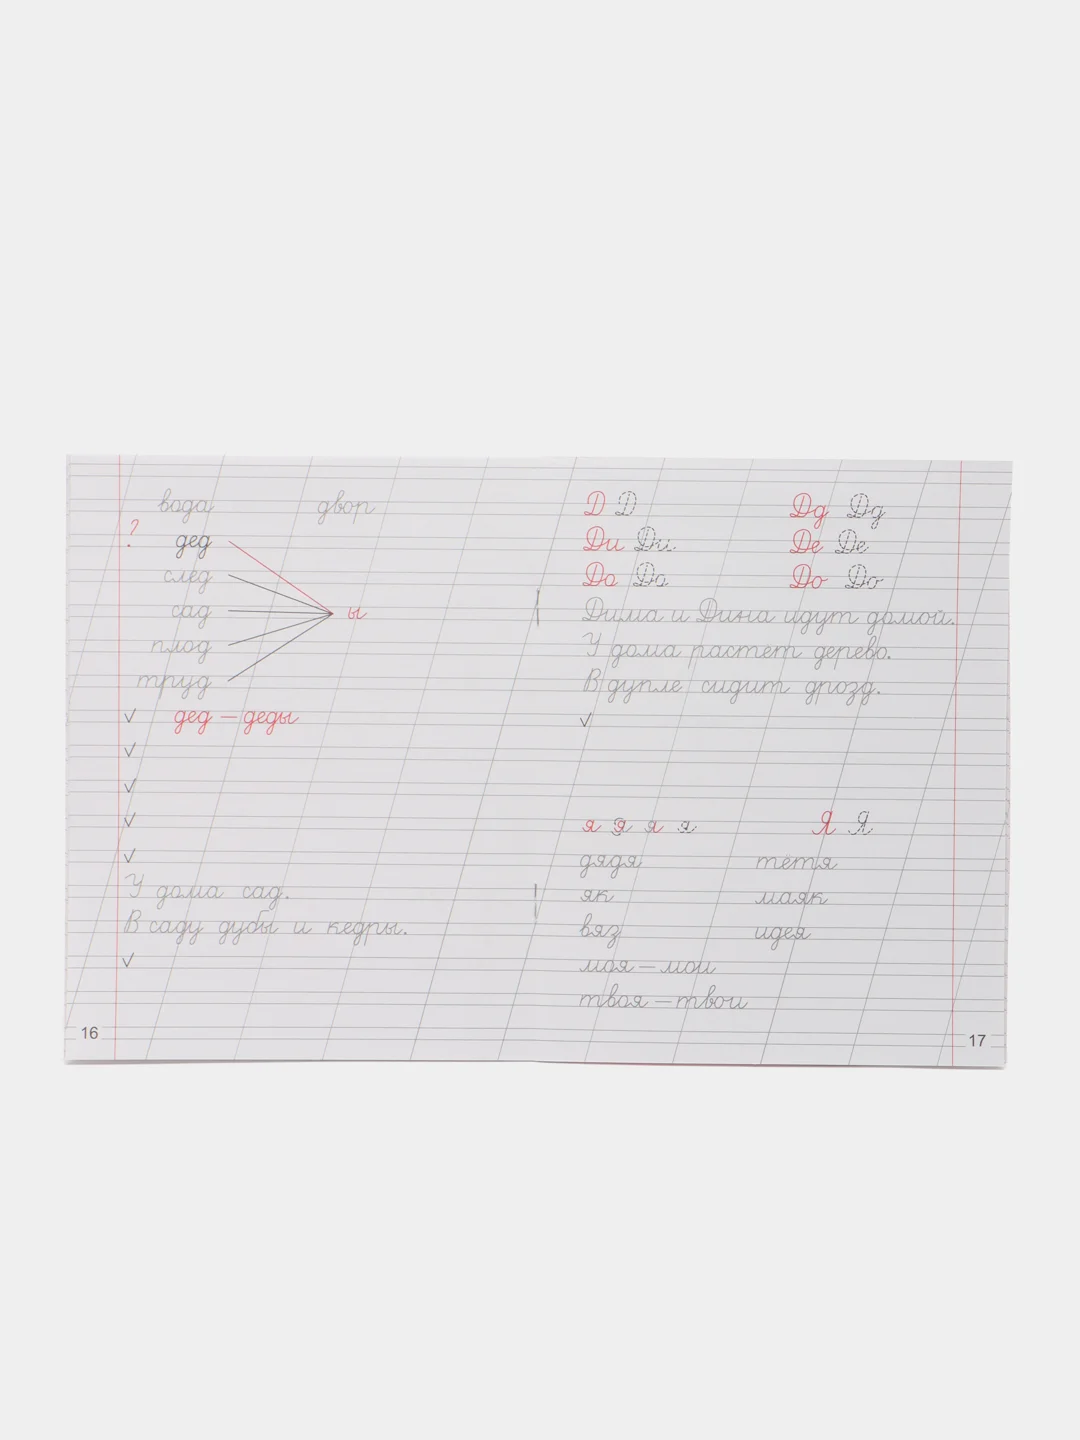 вода двор
?
дед
след
сад
ы
плод
труд
✓ дед – деды
✓
✓
✓
✓
У дома сад.
В саду дубы и кедры.
✓
16
Д Д Дд Дд
Ди Ди Де Де
Да Да До До
Дима и Дина идут домой.
У дома растёт дерево.
В дупле сидит дрозд.
✓
я я я я Я Я
дядя тётя
як маяк
вяз идея
моя – мои
твоя – твои
17